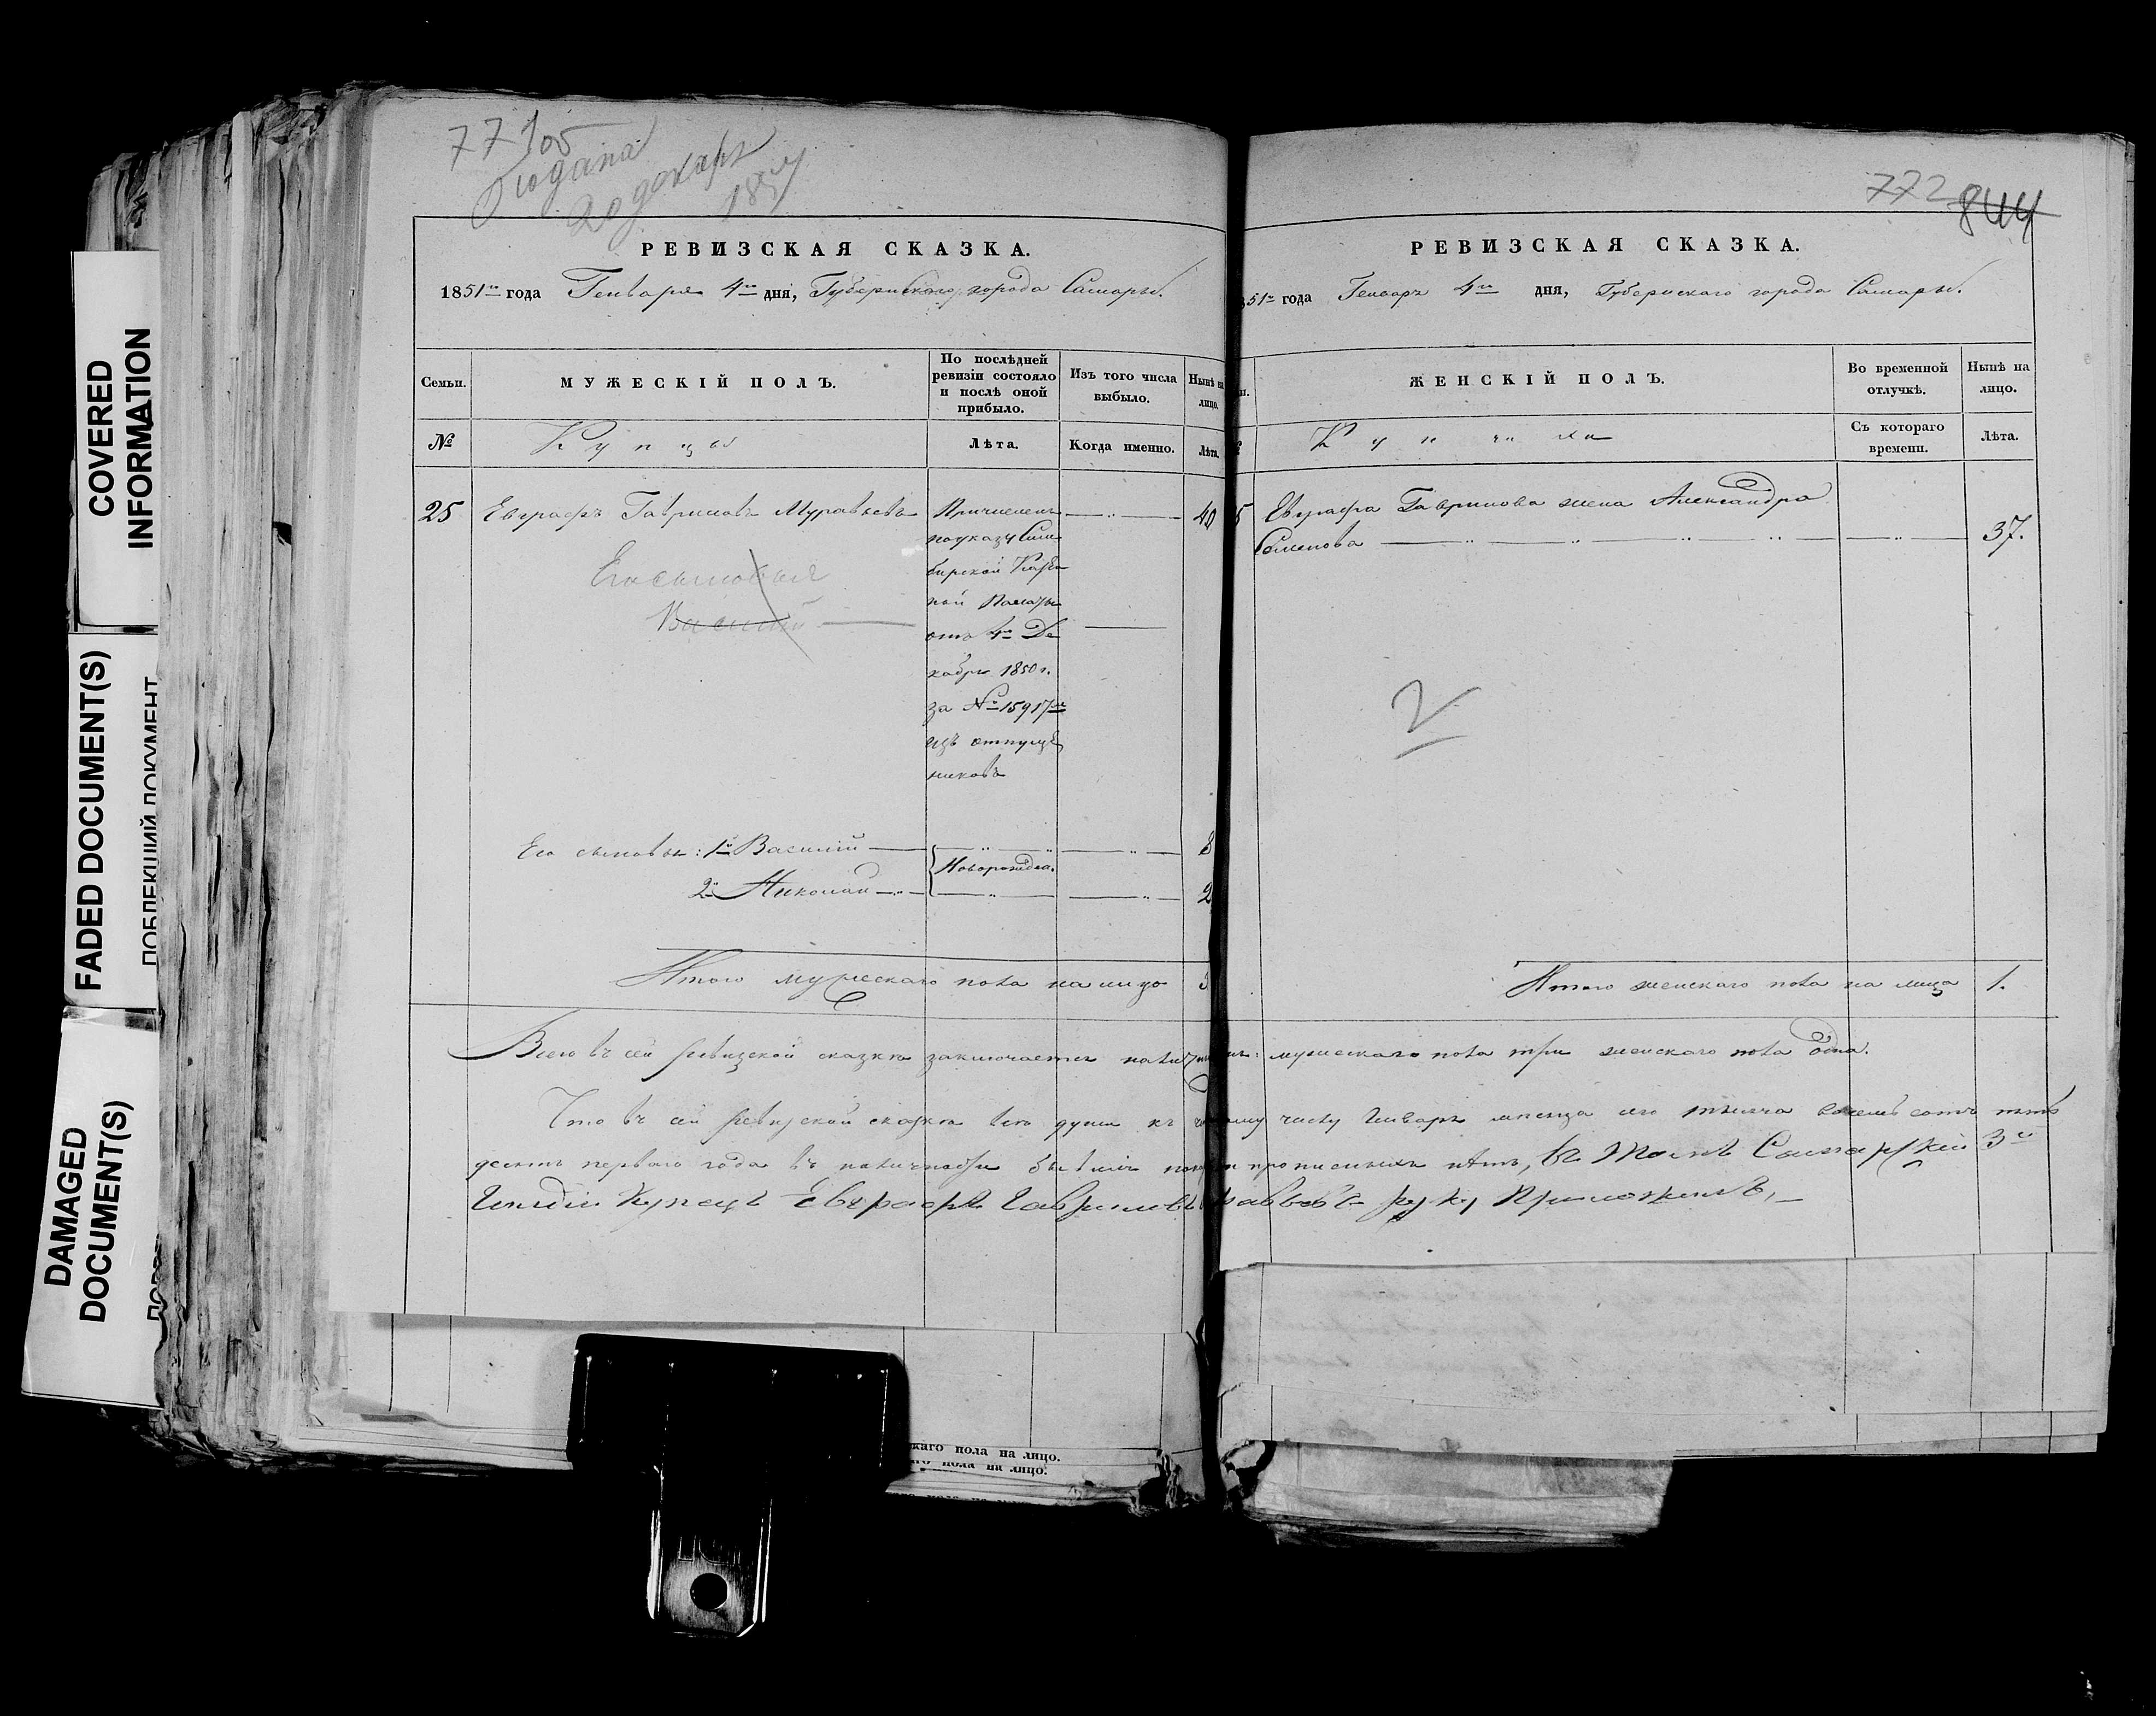 COVERED
INFORMATION
FADED DOCUMENT(S)
DAMAGED
DOCUMENT(S)
Подана
20 декабря
185
РЕВИЗСКАЯ СКАЗКА.
1851го года Генваря 4го дня, Губернскаго города Самары.
Семьи.
МУЖЕСКІЙ ПОЛЪ.
По послѣдней
ревизіи состояло
и послѣ оной
прибыло.
Изъ того числа
выбыло.
Нынѣ на
лицо.
№
Купцы
Лѣта.
Когда именно.
Лѣта.
25 Евграфъ Гавриловъ Муравьевъ
Причисленъ
по указу Сим
бирской Казен
ной Палаты
отъ 4го Де
кабря 1850 г.
за № 15917м
изъ отпущен
никовъ
40
Его сыновья
Василій
Его сыновья: 1й Василій
Новорожден.
8
2й Николай
2
Итого мужескаго пола на лицо 3
772 844
РЕВИЗСКАЯ СКАЗКА.
51го года Генваря 4го дня, Губернскаго города Самары.
ЖЕНСКІЙ ПОЛЪ.
Во временной
отлучкѣ.
Нынѣ на
лицо.
Купчихи
Съ котораго
времени.
Лѣта.
5 Евграфа Гаврилова жена Александра
Семенова 37.
2
Итого женскаго пола на лицо 1.
Всего въ сей ревизской сказкѣ заключается наличныхъ: мужескаго пола три женскаго пола одна.
Что въ сей ревизской сказкѣ всѣ души къ числу Генваря мѣсяца сего тысяча восемь сотъ пять
десятъ перваго года въ наличности бывшія прописныхъ нѣтъ, въ томъ Самарскій 3й
Гильдіи Купецъ Евграфъ Гавриловъ руку приложилъ,
каго пола на лицо.
пола на лицо.